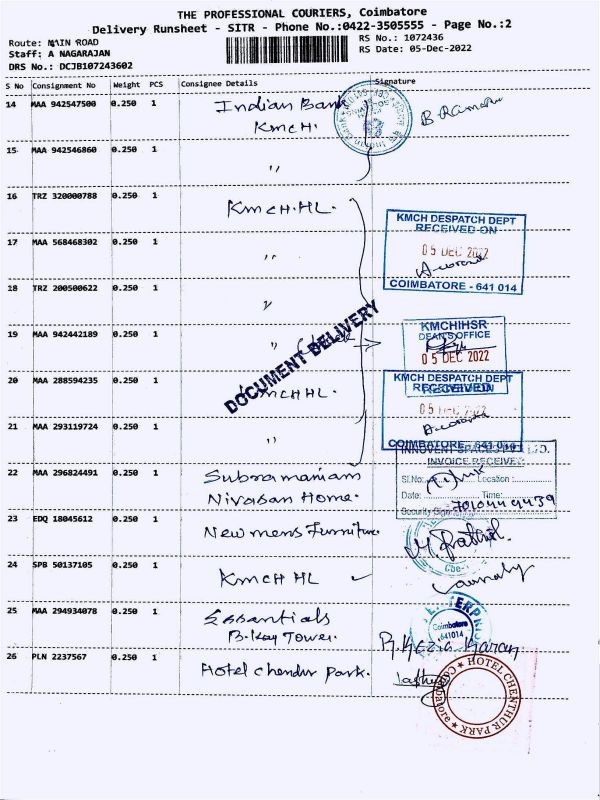 THE PROFESSIONAL COURIERS, Coimbatore
Delivery Runsheet - SITR - Phone No.:0422-3505555 - Page No.:2
Route: MAIN ROAD
RS No.: 1072436
Staff: A NAGARAJAN
RS Date: 05-Dec-2022
DRS No.: DCJB107243602
S No Consignment No Weight PCS Consignee Details Signature
14 MAA 942547500 0.250 1 Indian Bank
KMCH.
15 MAA 942546860 0.250 1 "
16 TRZ 320000788 0.250 1 KMCH.HL.
KMCH DESPATCH DEPT
RECEIVED ON
17 MAA 568468302 0.250 1 "
05 DEC 2022
COIMBATORE - 641 014
18 TRZ 200500622 0.250 1 "
DOCUMENT DELIVERY
19 MAA 942442189 0.250 1 "
KMCHIHSR
DEAN'S OFFICE
05 DEC 2022
20 MAA 288594235 0.250 1 KMCHHL.
KMCH DESPATCH DEPT
RECEIVED ON
05 DEC 2022
21 MAA 293119724 0.250 1 "
COIMBATORE - 641 014
INVOICE RECEIVE
22 MAA 296824491 0.250 1 Subramaniam
Nivasan Home.
Sl.No: Location :
Date: Time:
7010449439
23 EDQ 18045612 0.250 1 Newmens Furniture
24 SPB 50137105 0.250 1 KMCH HL
25 MAA 294934078 0.250 1 Essentials
B-Kay Tower.
Coimbatore
641014
26 PLN 2237567 0.250 1 Hotel Chendur Park.
HOTEL CHENTHUR PARK